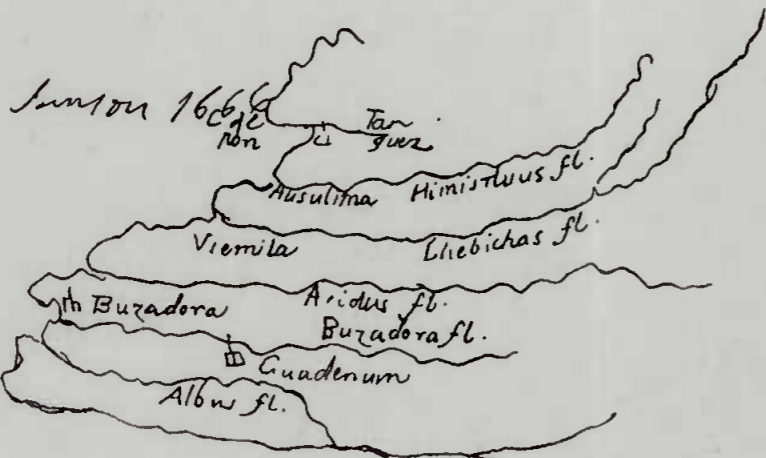 Sanson 1666
C. de
non
Tan
guez
Ausulima
Himistuus fl.
Viemila
Lhebichas fl.
Buzadora
Aridus fl.
Buzadora fl.
Guadenum
Albus fl.